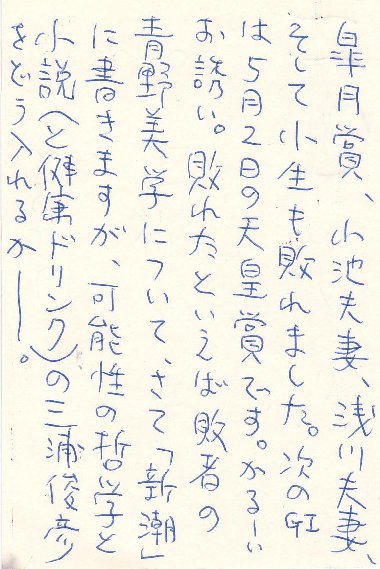 皐月賞、小池夫妻、浅川夫妻、
そして小生も敗れました。次のGI
は5月2日の天皇賞です。かるーい
お誘い。敗れたといえば敗者の
青野美学について、さて「新潮」
に書きますが、可能性の哲学と
小説(と健康ドリンク)の三浦俊彦
をどう入れるか──。